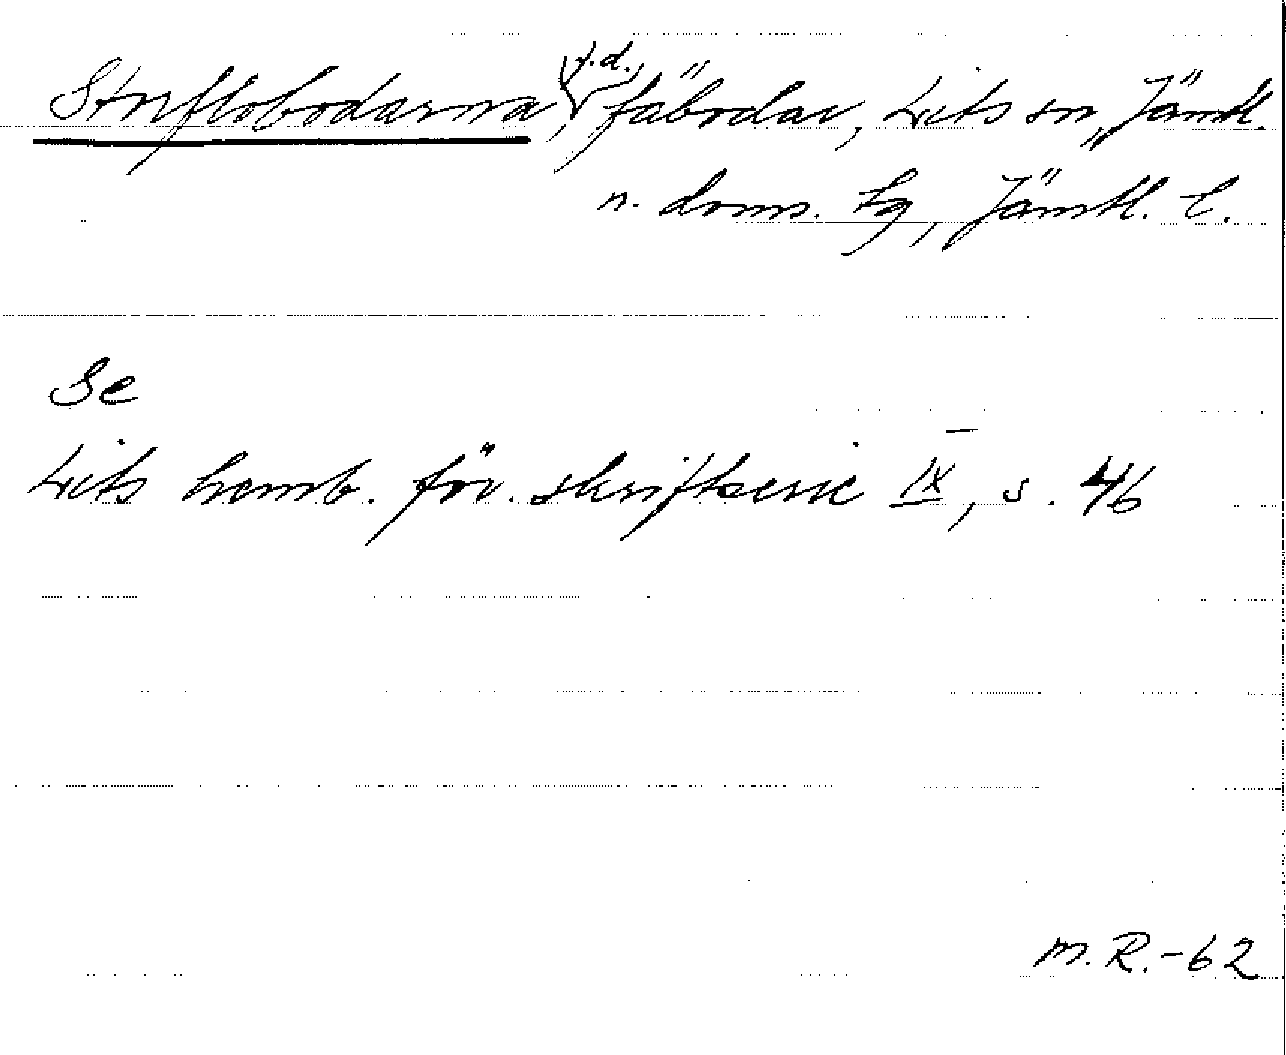 Storflobodarna, f.d. fäbodar, Lits sn, Jämtl.
n. doms. tg, Jämtl. l.
Se
Lits hemb. för. skriftserie IX, s. 46
M.R.-62